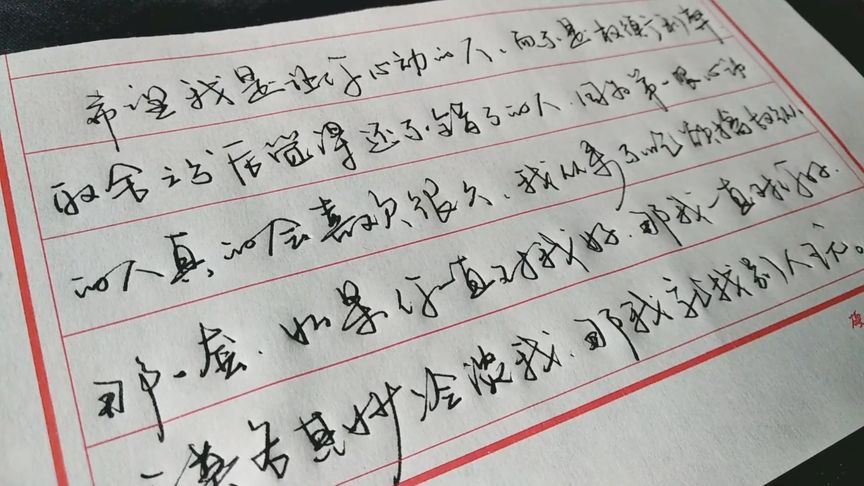 希望我是让你心动的人、而不是权衡利弊
取舍之后觉得还不错了的人、因为第一眼心动
的人真的会喜欢很久、我从来不吃欲擒故纵
那一套、如果你一直对我好、那我一直对你好、
莫名其妙冷淡我、那我就找别人了